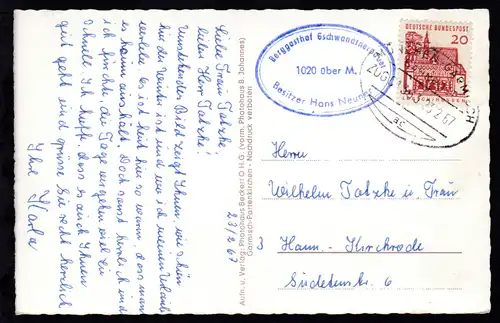 Liebe Frau Tatzke!
Lieber Herr Tatzke!
Umstehendes Bild zeigt Ihnen, wie schön
hier der Winter ist und wo ich meinen Urlaub
verlebe. Es ist heut hier so warm, dass man
es kaum aushält. Doch sonst herrlich und
ich fürchte, die Tage vergehen viel zu
schnell. Ich hoffe, dass es auch Ihnen
gut geht und grüsse Sie recht herzlich
Ihre Karla
23/2.67
Aufn. u. Verlag: Photohaus Beckert O.H.G. (vorm. Photohaus B. Johannes)
Garmisch-Partenkirchen - Nachdruck verboten
Berggasthof Gschwandtnerbauer
1020 über M.
Besitzer Hans Neuner
DEUTSCHE BUNDESPOST
20
Herrn
Wilhelm Tatzke u. Frau
3 Hann.-Kirchrode
Sudetenstr. 6